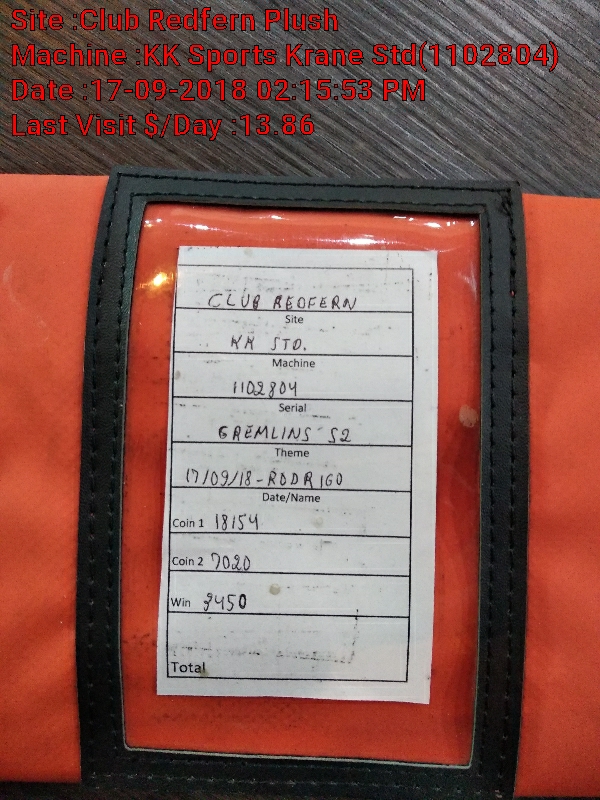 Site :Club Redfern Plush
Machine :KK Sports Krane Std(1102804)
Date :17-09-2018 02:15:53 PM
Last Visit $/Day :13.86
CLUB REDFERN
Site
KK STD.
Machine
1102804
Serial
GREMLINS S2
Theme
17/09/18-RODRIGO
Date/Name
Coin 1 18154
Coin 2 7020
Win 9450
Total